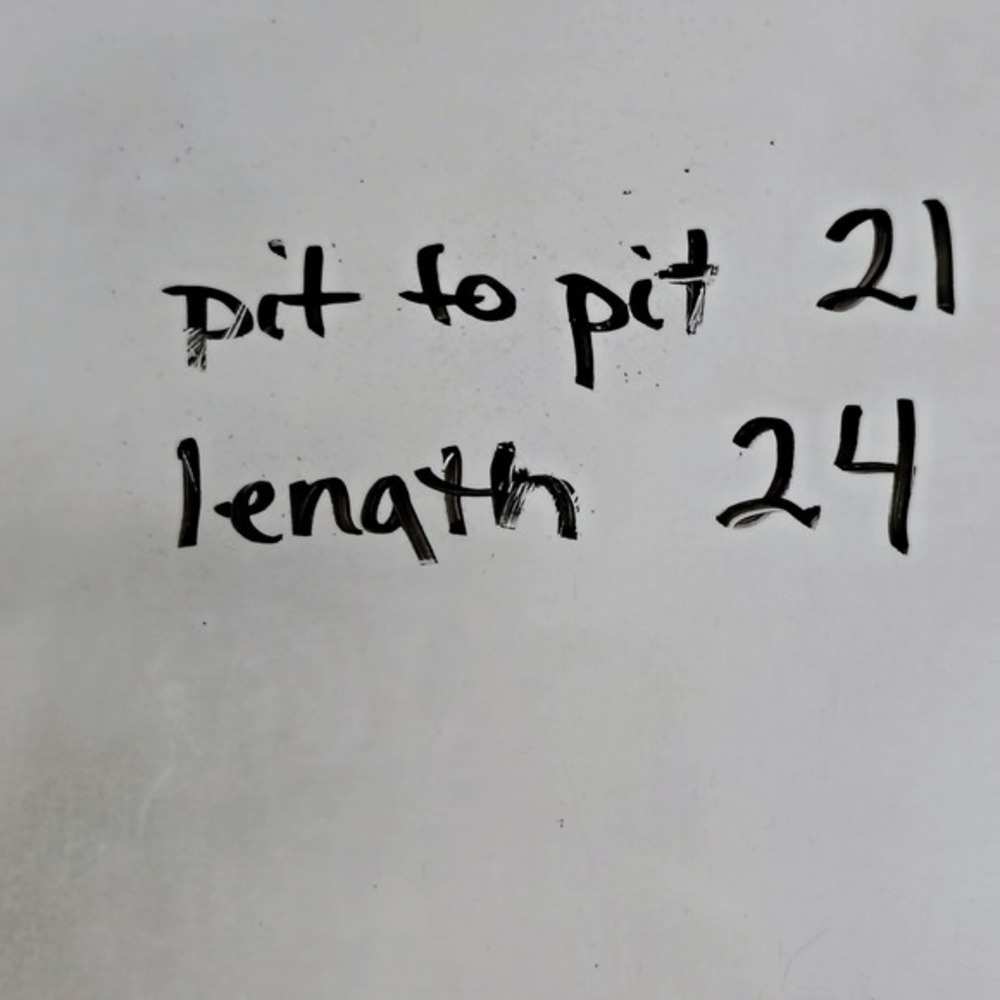 pit to pit 21
length 24